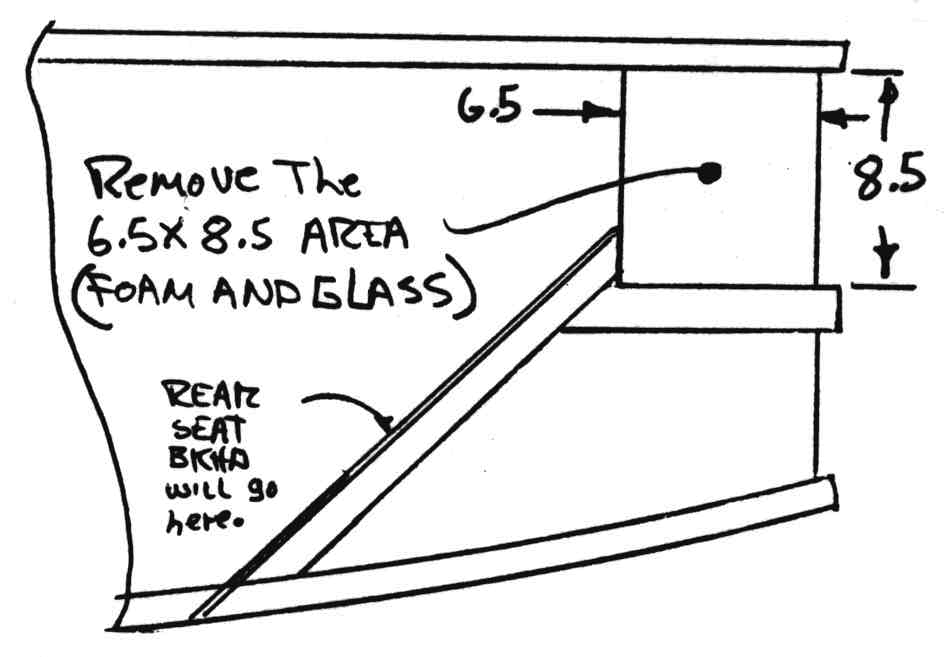 6.5
8.5
Remove The
6.5X 8.5 AREA
(FOAM AND GLASS)
REAR
SEAT
BKHD
will go
here.